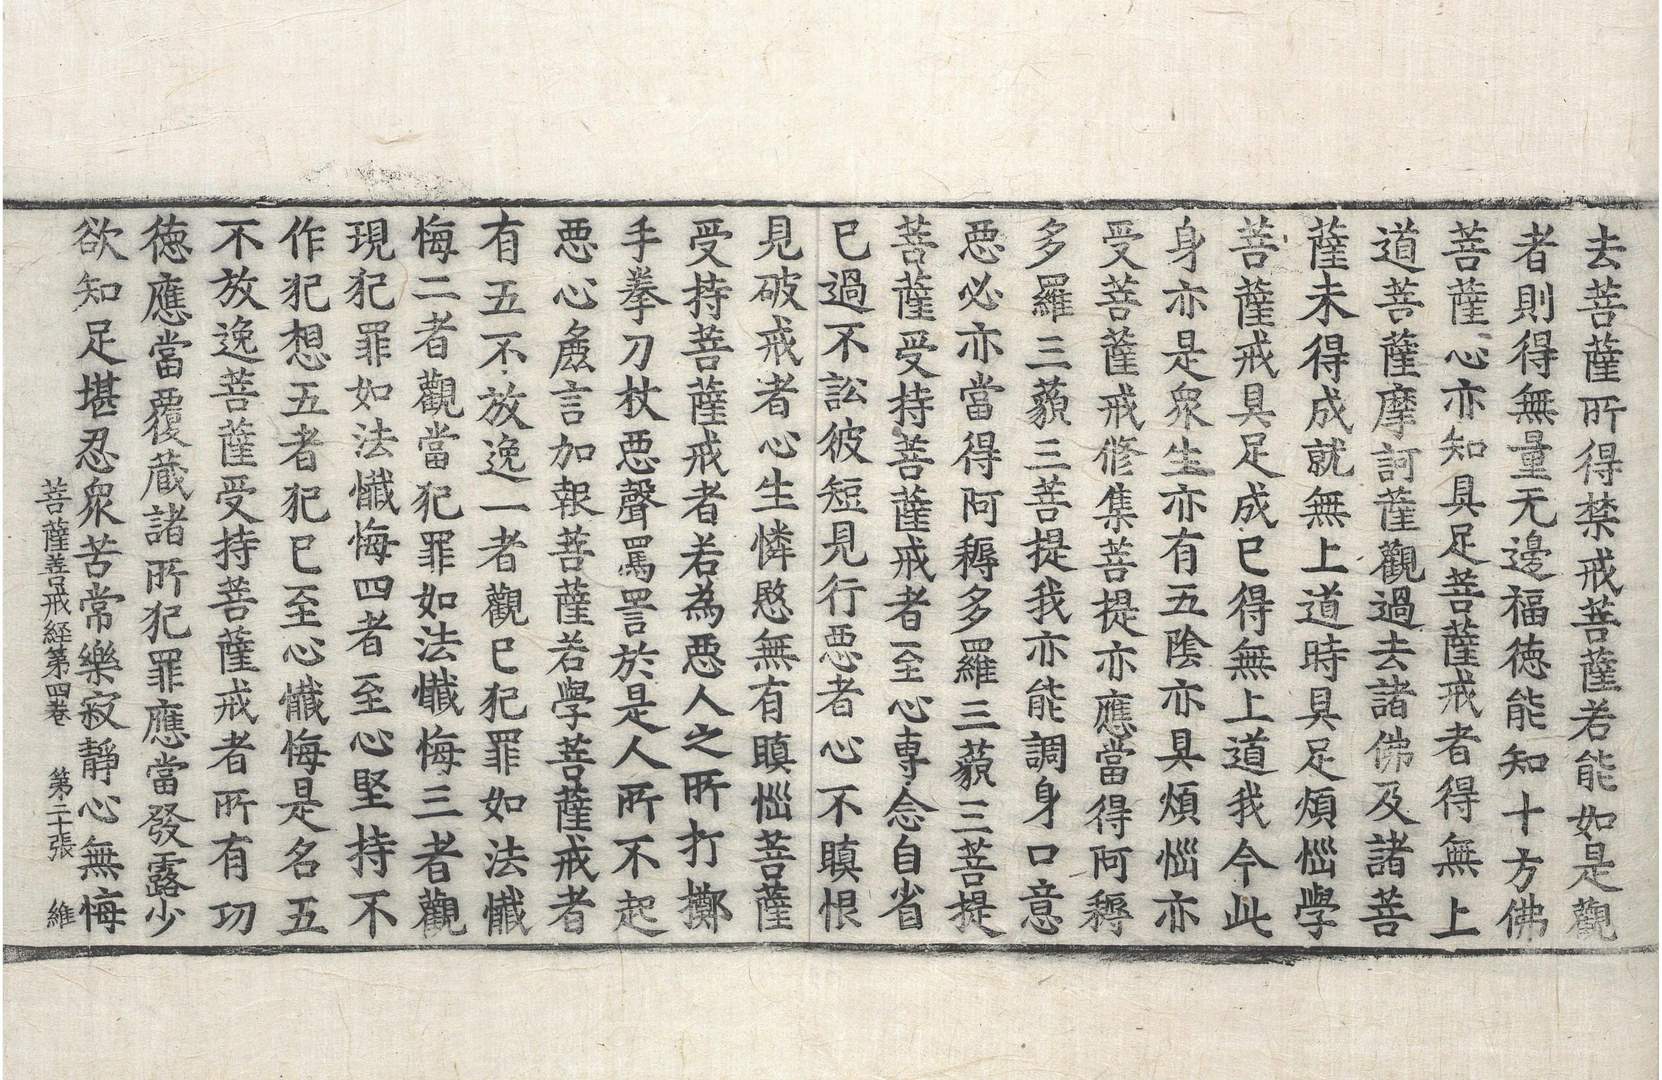 去菩薩所得禁戒菩薩若能如是觀
者則得無量无邊福徳能知十方佛
菩薩心亦知具足菩薩戒者得無上
道菩薩摩訶薩觀過去諸佛及諸菩
薩未得成就無上道時具足煩惱學
菩薩戒具足成已得無上道我今此
身亦是衆生亦有五陰亦具煩惱亦
受菩薩戒修集菩提亦應當得阿耨
多羅三藐三菩提我亦能調身口意
惡必亦當得阿耨多羅三藐三菩提
菩薩受持菩薩戒者至心專念自省
已過不訟彼短見行惡者心不瞋恨
見破戒者心生憐愍無有瞋惱菩薩
受持菩薩戒者若為惡人之所打擲
手拳刀杖惡聲罵詈於是人所不起
惡心麁言加報菩薩若學菩薩戒者
有五不放逸一者觀已犯罪如法懺
悔二者觀當犯罪如法懺悔三者觀
現犯罪如法懺悔四者至心堅持不
作犯想五者犯已至心懺悔是名五
不放逸菩薩受持菩薩戒者所有功
徳應當覆蔵諸所犯罪應當發露少
欲知足堪忍衆苦常樂寂靜心無悔
菩薩善戒経第四卷　第二十張　維